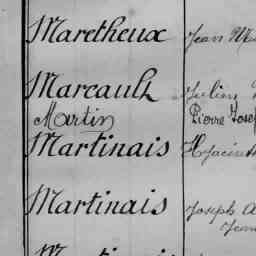 Maretheux Jean M
Marcault Julien
Martin Pierre Josef
Martinais Hyacinth
Martinais Joseph A
Jean